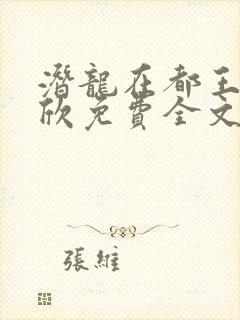 潛龍在都王
欣免費全文
張維